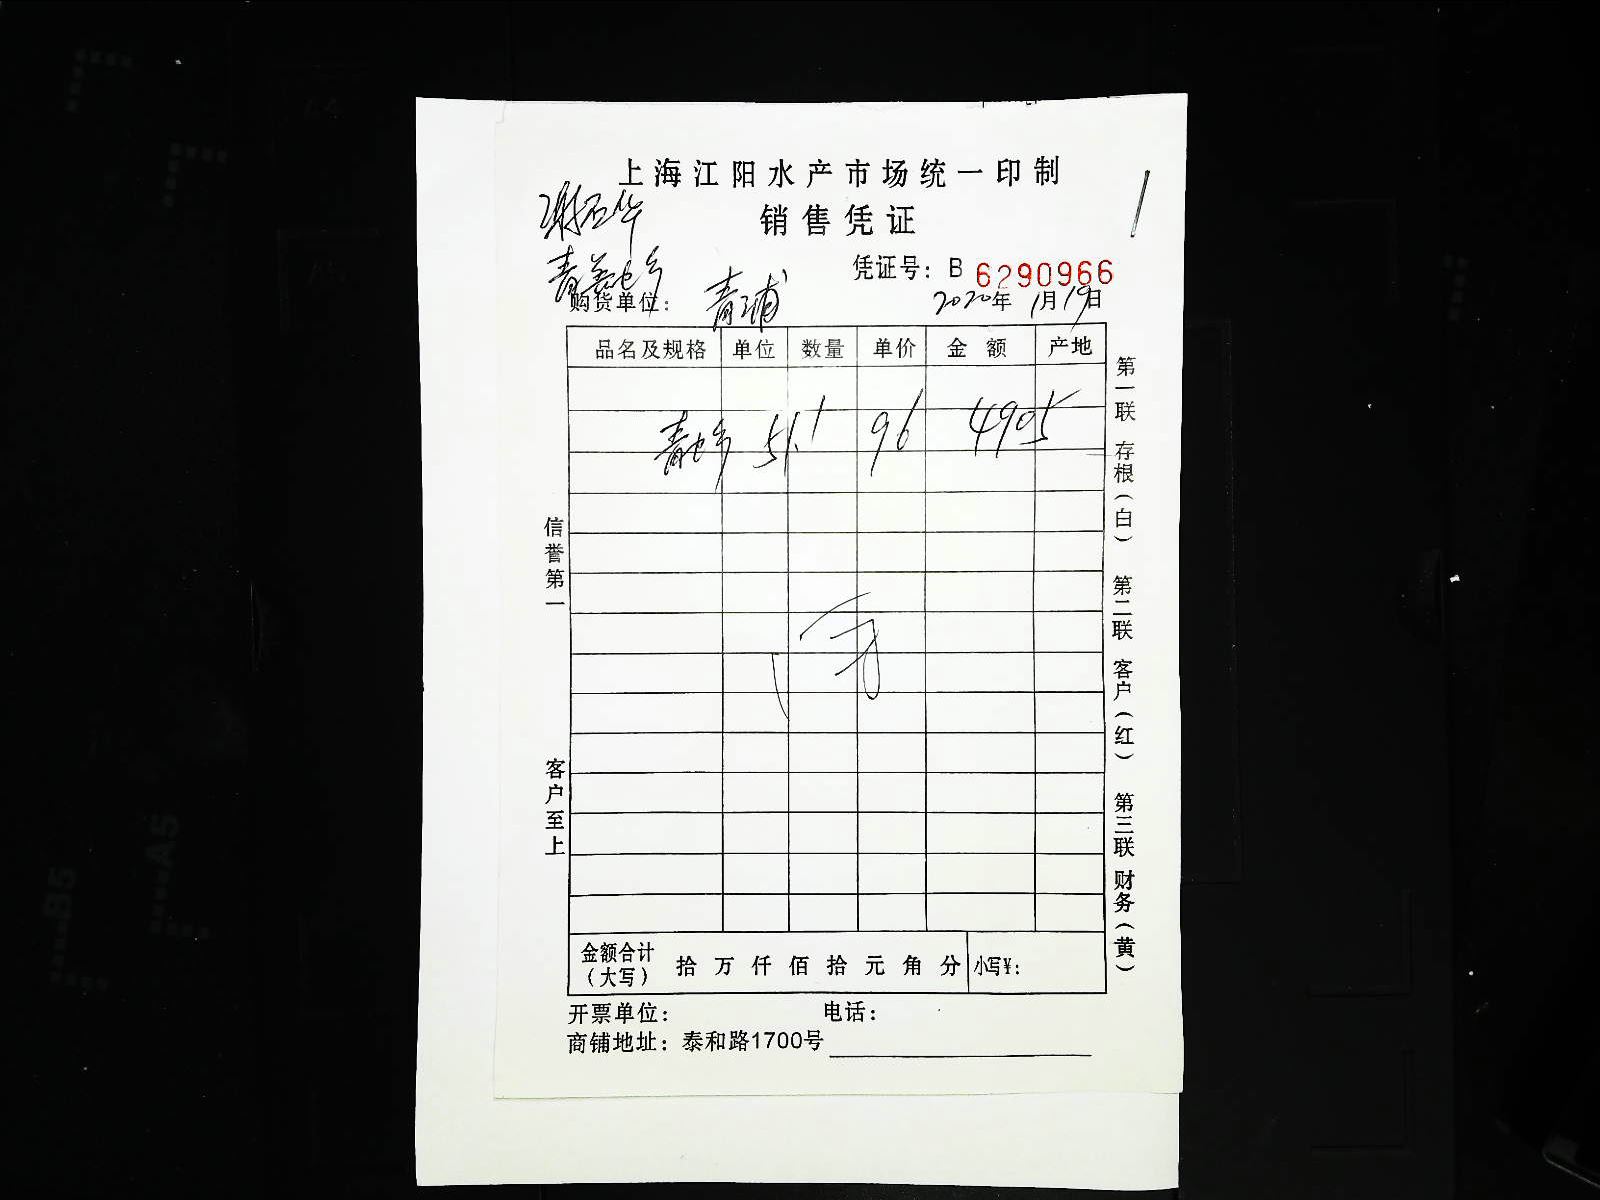 上海江阳水产市场统一印制
销售凭证
凭证号：B 6290966
购货单位：青浦 2020年1月19日
品名及规格 单位 数量 单价 金额 产地
51.1 96 4905
信誉第一
客户至上
第一联 存根（白） 第二联 客户（红） 第三联 财务（黄）
金额合计（大写） 拾 万 仟 佰 拾 元 角 分 小写¥：
开票单位： 电话：
商铺地址：泰和路1700号